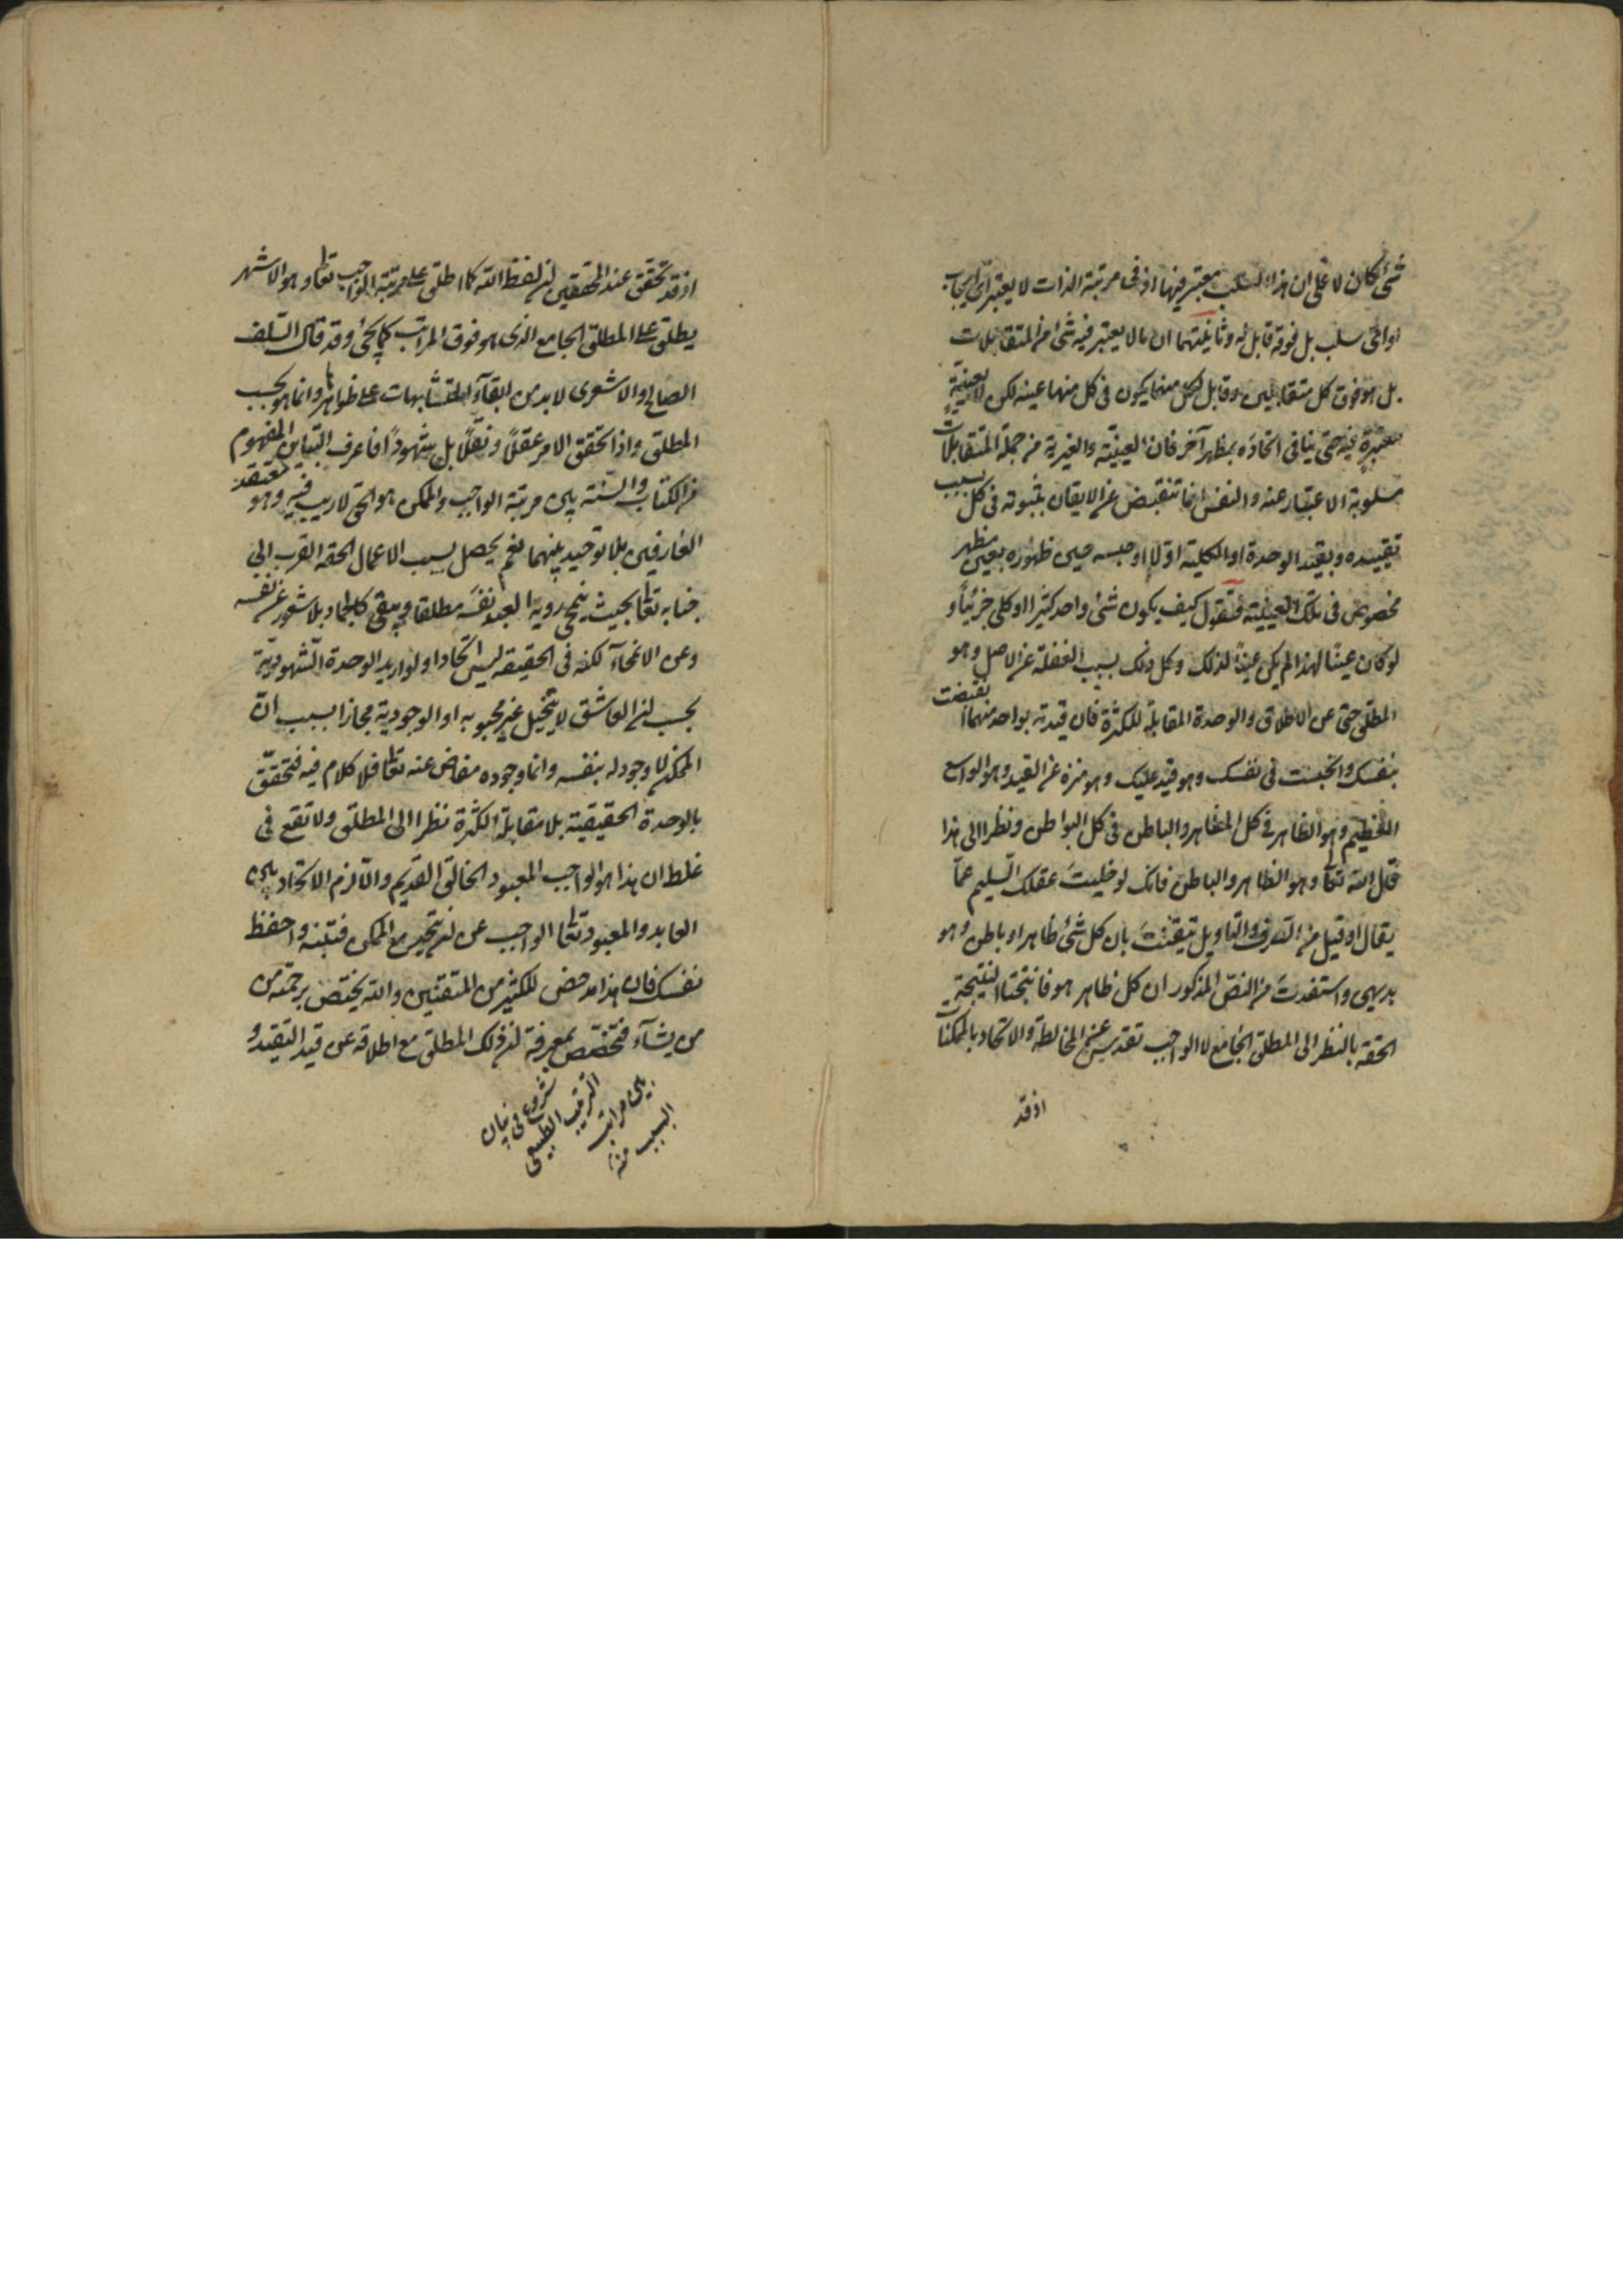 شئ كان لا على ان هذا السلب معتبر فيها اذ فى مرتبة الذات لا يعتبر اى ايجاب
او اى سلب بل فوقه قابل له وثانيتهما ان ما لا يعتبر فيه شئ من المتقابلات
بل هو فوق كل متقابلين وقابل لكل منهما يكون فى كل منهما عينه لكن لا بعينية
معتبرة فيه حتى ينافى اتحاده بمظهر آخر فان العينية والغيرية من جملة المتقابلات
مسلوبة الاعتبار عنه والنفس انما تنقبض عن الايقان بثبوته فى كل بسبب
تقييده وبقيد الوحدة او الكلية اولا او حبسه حين ظهوره بعين مظهر
مخصوص فى تلك العينية فتقول كيف يكون شئ واحد كثيرا او كلى جزئيا و
لو كان عينا لهذا لم يكن عينا لذلك وكل ذلك بسبب الغفلة عن الاصل وهو
المطلق حتى عن الاطلاق والوحدة المقابلة للكثرة فان قيدته بواحد منهما انقبضت
بنفسك وانحبست فى نفسك وهو قيد عليك وهو منزه عن القيد وهو الواسع
العظيم وهو الظاهر فى كل المظاهر والباطن فى كل البواطن ونظرا الى هذا
قال الله تعالى وهو الظاهر والباطن فانك لو خليت عقلك السليم عما
يقال او قيل من التصرف والتاويل تيقنت بان كل شئ ظاهر او باطن وهو
بديهى واستفدت من النص المذكور ان كل ظاهر هو فانتجتا النتيجة
الحقة بالنظر الى المطلق الجامع لا الواجب تقدس عن المخالطة والاتحاد بالممكنات
اذ قد
اذ قد تحقق عند المحققين ان لفظ الله كما اطلق على مرتبة الواجب تعالى وهو الاشهر
يطلق على المطلق الجامع الذى هو فوق المراتب كما يجئ وقد قال السلف
الصالح والاشعرى لا بد من ابقاء المتشابهات على ظواهرها وانما هو بحسب
المطلق واذا تحقق الامر عقلا ونقلا بل شهودا فاعرف التباين المفهوم
من الكتاب والسنة بين مرتبة الواجب والممكن هو الحق لا ريب فيه وهو معتقد
العارفين بلا توحيد بينهما نعم يحصل بسبب الاعمال الحقة القرب الى
جنابه تعالى بحيث ينمحى روية العبد نفسه مطلقا ويبقى كالجماد بلا شعور عن نفسه
وعن الانمحاء لكنه فى الحقيقة ليس اتحادا ولو اريد الوحدة الشهودية
بحسب ان العاشق لا يتخيل غير محبوبه او الوجودية مجازا بسبب ان
الممكن لا وجود له بنفسه وانما وجوده مفاض عنه تعالى فلا كلام فيه فتحقق
بالوحدة الحقيقية بلا مقابلة الكثرة نظرا الى المطلق ولا تقع فى
غلط ان هذا هو الواجب المعبود الخالق القديم والا لزم الاتحاد بين
العابد والمعبود تعالى الواجب عن ان يتحد مع الممكن فتنبه واحفظ
نفسك فان هذا مدحض للكثير من المتقنين والله يختص برحمته من
من يشاء فتختص بمعرفة ان ذلك المطلق مع اطلاقه عن قيد التقيد و
شروع فى بيان
الترتيب الطبيعى
بين مراتب
السبب منه